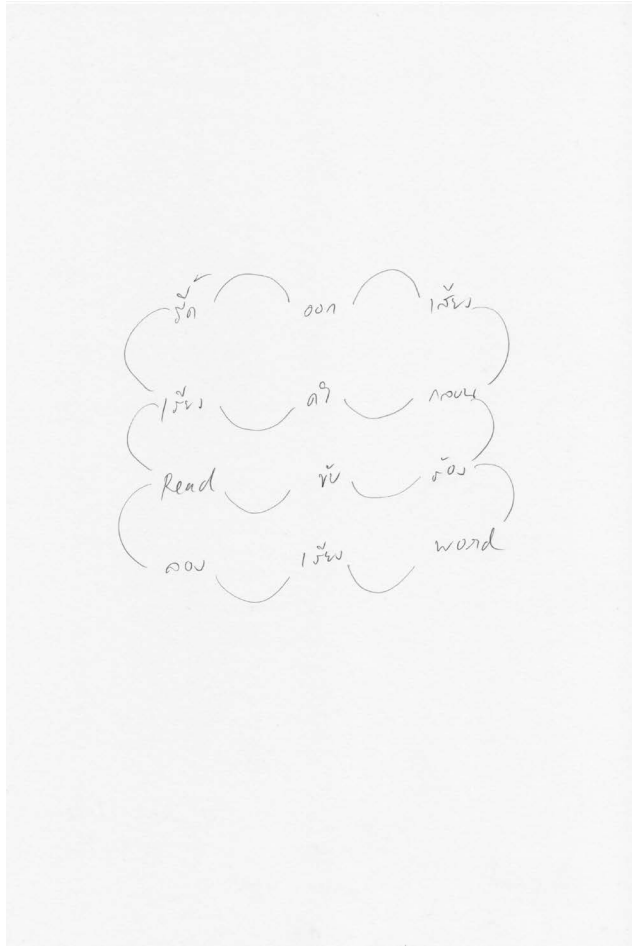 รี๊ด ออก เสียง
เรียง คำ กลอน
Read ขับ ร้อง
ลอง เรียง word